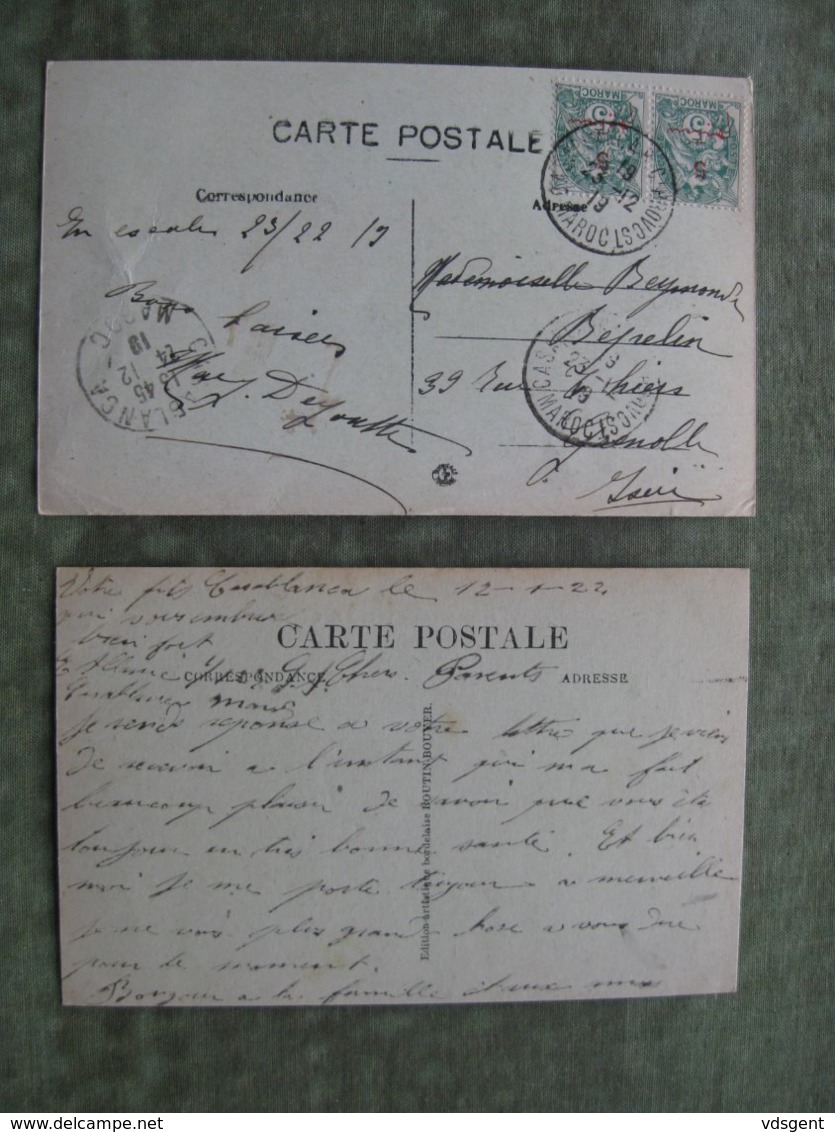 CARTE POSTALE
Correspondance
Adresse
MAROC
MAROC
5
5
23-12
19
MAROC
En escale 23/22 19
Bons baisers
Mademoiselle
39 Rue Thiers
Grenoble
Isère
CASABLANCA
MAROC
24-12
19
CASA
MAROC
Votre fils Casablanca le 12-1-22
qui vous embrasse
bien fort
CARTE POSTALE
CORRESPONDANCE
ADRESSE
Chers Parents
Casablanca Maroc
Je rends reponse a votre lettre que je viens
de recevoir a l'instant qui ma fait
beaucoup plaisir de savoir que vous été
toujour en tres bonne santé. Et bien
moi je me porte toujour a merveille
je ne vois plus grand chose a vous dire
pour le moment.
Bonjour a la famille et aux amis
Edition artistique bordelaise
delcampe.net
vdsgent